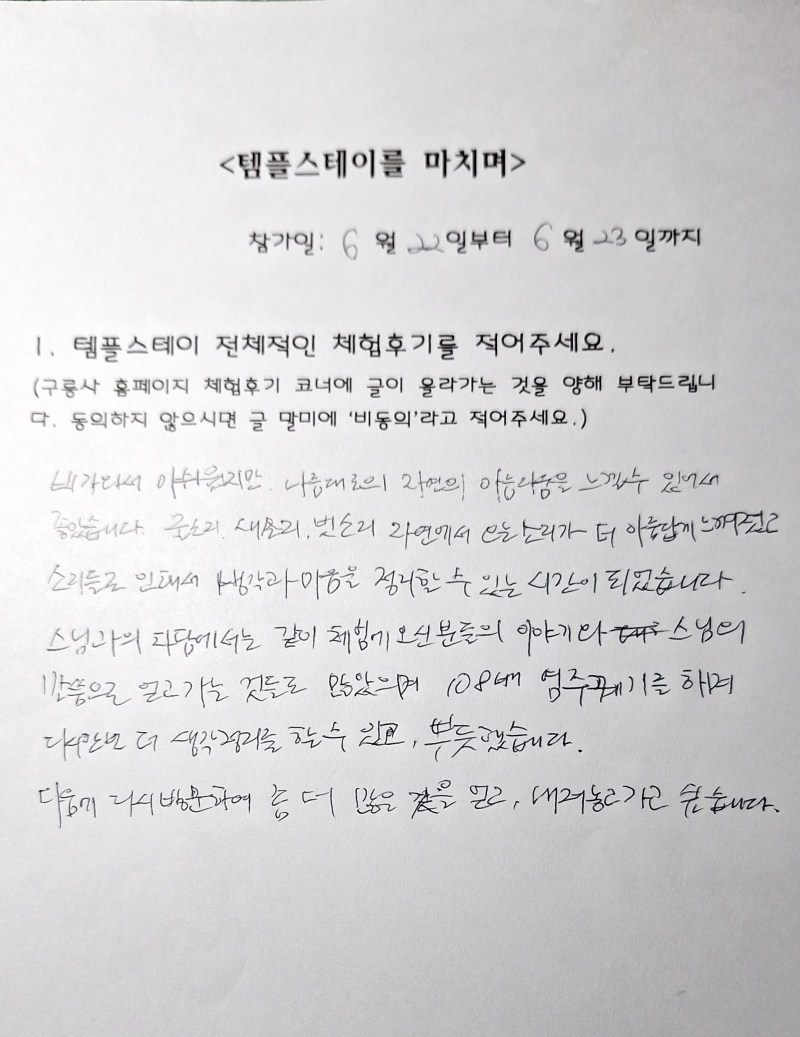 <템플스테이를 마치며>
참가일: 6 월 22일부터 6 월 23 일까지
1. 템플스테이 전체적인 체험후기를 적어주세요.
(구룡사 홈페이지 체험후기 코너에 글이 올라가는 것을 양해 부탁드립니
다. 동의하지 않으시면 글 말미에 '비동의'라고 적어주세요.)
비가와서 아쉬웠지만 나름대로의 자연의 아름다움을 느낄수 있어서
좋았습니다. 물소리, 새소리, 빗소리 자연에서 오는 소리가 더 아름답게 느껴졌고
소리들로 인해서 생각과 마음을 정리할 수 있는 시간이 되었습니다.
스님과의 차담에서는 같이 체험에 오신분들의 이야기와 스님의
말씀으로 얻고 가는 것들도 많았으며 108배 염주꿰기를 하며
다시한번 더 생각정리를 할 수 있고, 뿌듯했습니다.
다음에 다시 방문하여 좀 더 많은 것을 얻고, 내려놓고 가고 싶습니다.